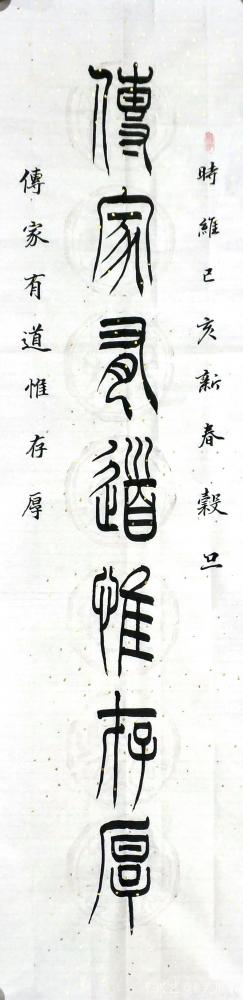 時維己亥新春穀旦
傳家有道惟存厚
傳家有道惟存厚